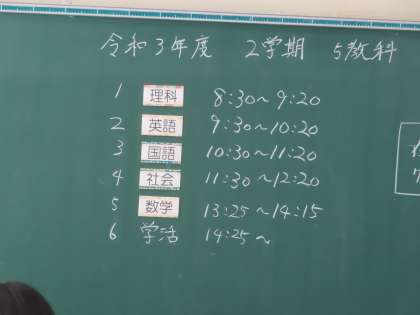 令和3年度 2学期 5教科
1 理科 8:30～9:20
2 英語 9:30～10:20
3 国語 10:30～11:20
4 社会 11:30～12:20
5 数学 13:25～14:15
6 学活 14:25～